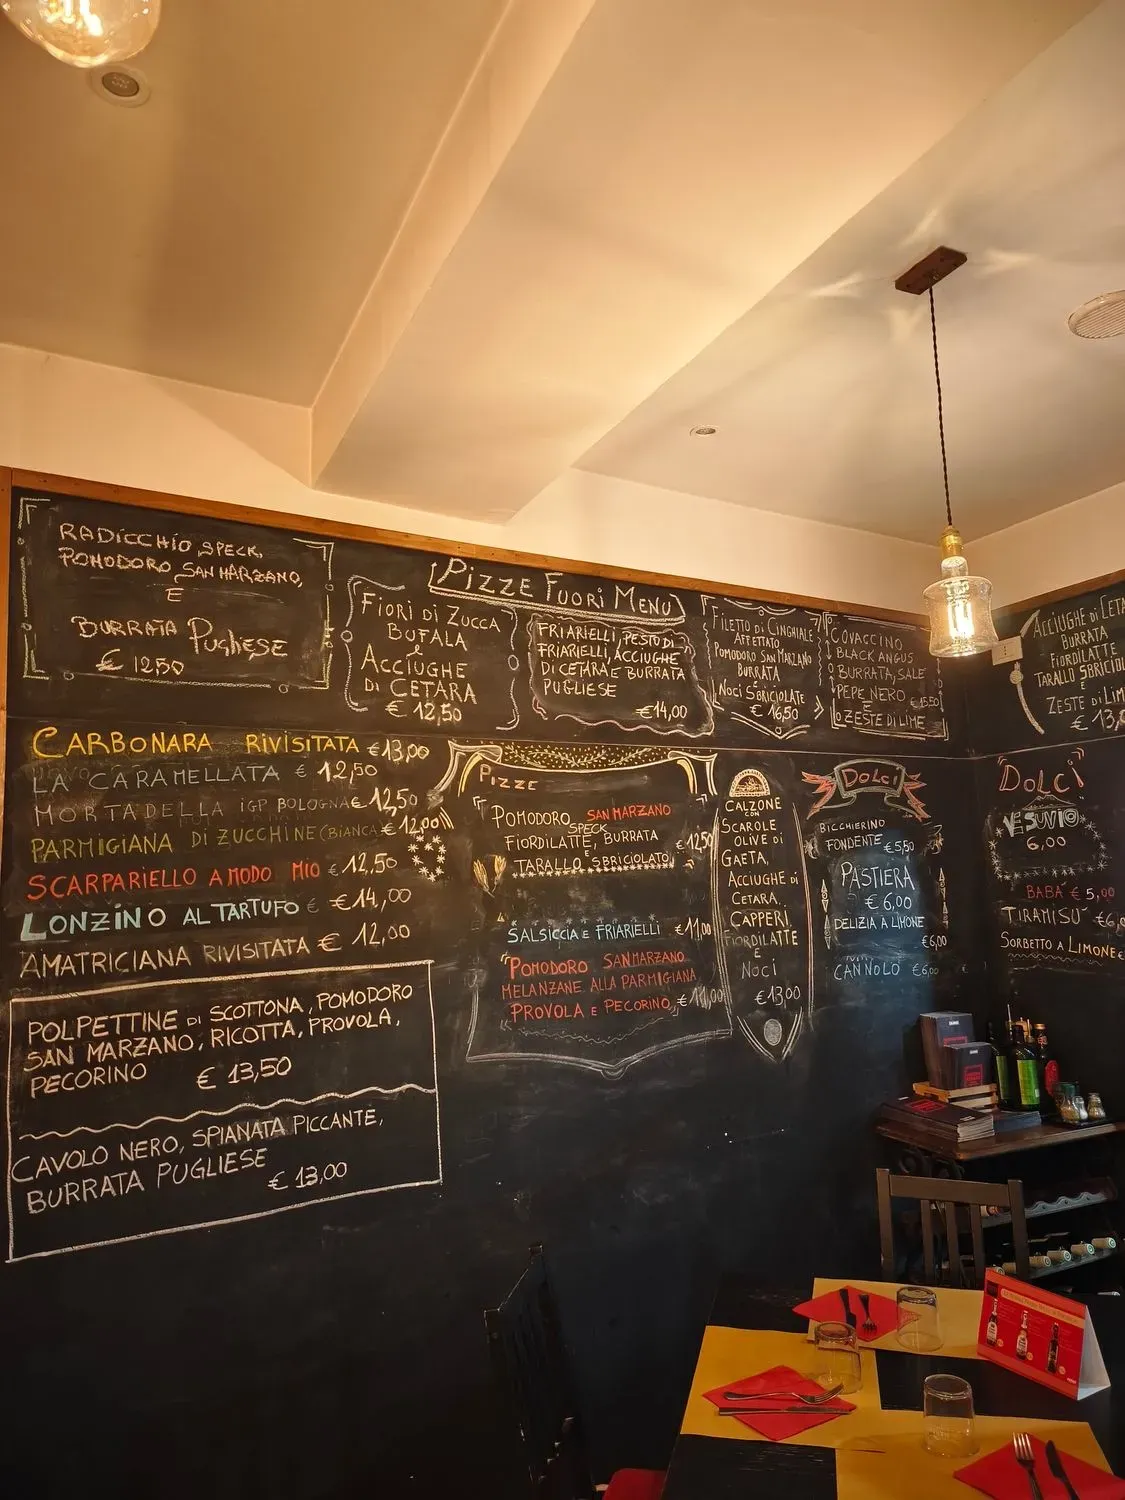 RADICCHIO, SPECK,
POMODORO SAN MARZANO,
E
BURRATA PUGLIESE
€ 12,50
PIZZE FUORI MENU
FIORI DI ZUCCA
BUFALA
e
ACCIUGHE
DI CETARA
€ 12,50
FRIARIELLI, PESTO DI
FRIARIELLI, ACCIUGHE
DI CETARA E BURRATA
PUGLIESE
€14,00
FILETTO DI CINGHIALE
AFFETTATO
POMODORO SAN MARZANO
BURRATA
E
NOCI SBRICIOLATE
€ 16,50
COVACCINO
BLACK ANGUS
BURRATA, SALE
PEPE NERO € 15,50
E
ZESTE DI LIME
ACCIUGHE DI CETA
BURRATA
FIORDILATTE
TARALLO SBRICIOL
E
ZESTE DI LIM
€ 13,0
CARBONARA RIVISITATA €13,00
LA CARAMELLATA € 12,50
MORTADELLA IGP BOLOGNA € 12,50
PARMIGIANA DI ZUCCHINE (BIANCA) € 12,00
SCARPARIELLO A MODO MIO € 12,50
LONZINO AL TARTUFO € €14,00
AMATRICIANA RIVISITATA € 12,00
POLPETTINE DI SCOTTONA, POMODORO
SAN MARZANO, RICOTTA, PROVOLA,
PECORINO € 13,50
CAVOLO NERO, SPIANATA PICCANTE,
BURRATA PUGLIESE
€ 13,00
PIZZE
POMODORO SAN MARZANO
SPECK
FIORDILATTE, BURRATA
€ 12,50
TARALLO SBRICIOLATO
SALSICCIA E FRIARIELLI €11,00
POMODORO SAN MARZANO
MELANZANE ALLA PARMIGIANA
PROVOLA E PECORINO, € 11,00
CALZONE
CON
SCAROLE
OLIVE DI
GAETA,
ACCIUGHE DI
CETARA,
CAPPERI
FIORDILATTE
E
NOCI
€13,00
DOLCI
BICCHIERINO
FONDENTE €5,50
PASTIERA
€ 6,00
DELIZIA A LIMONE
€6,00
CANNOLO €6,00
DOLCI
VESUVIO
6,00
BABÀ € 5,00
TIRAMISU' €6,0
SORBETTO A LIMONE €